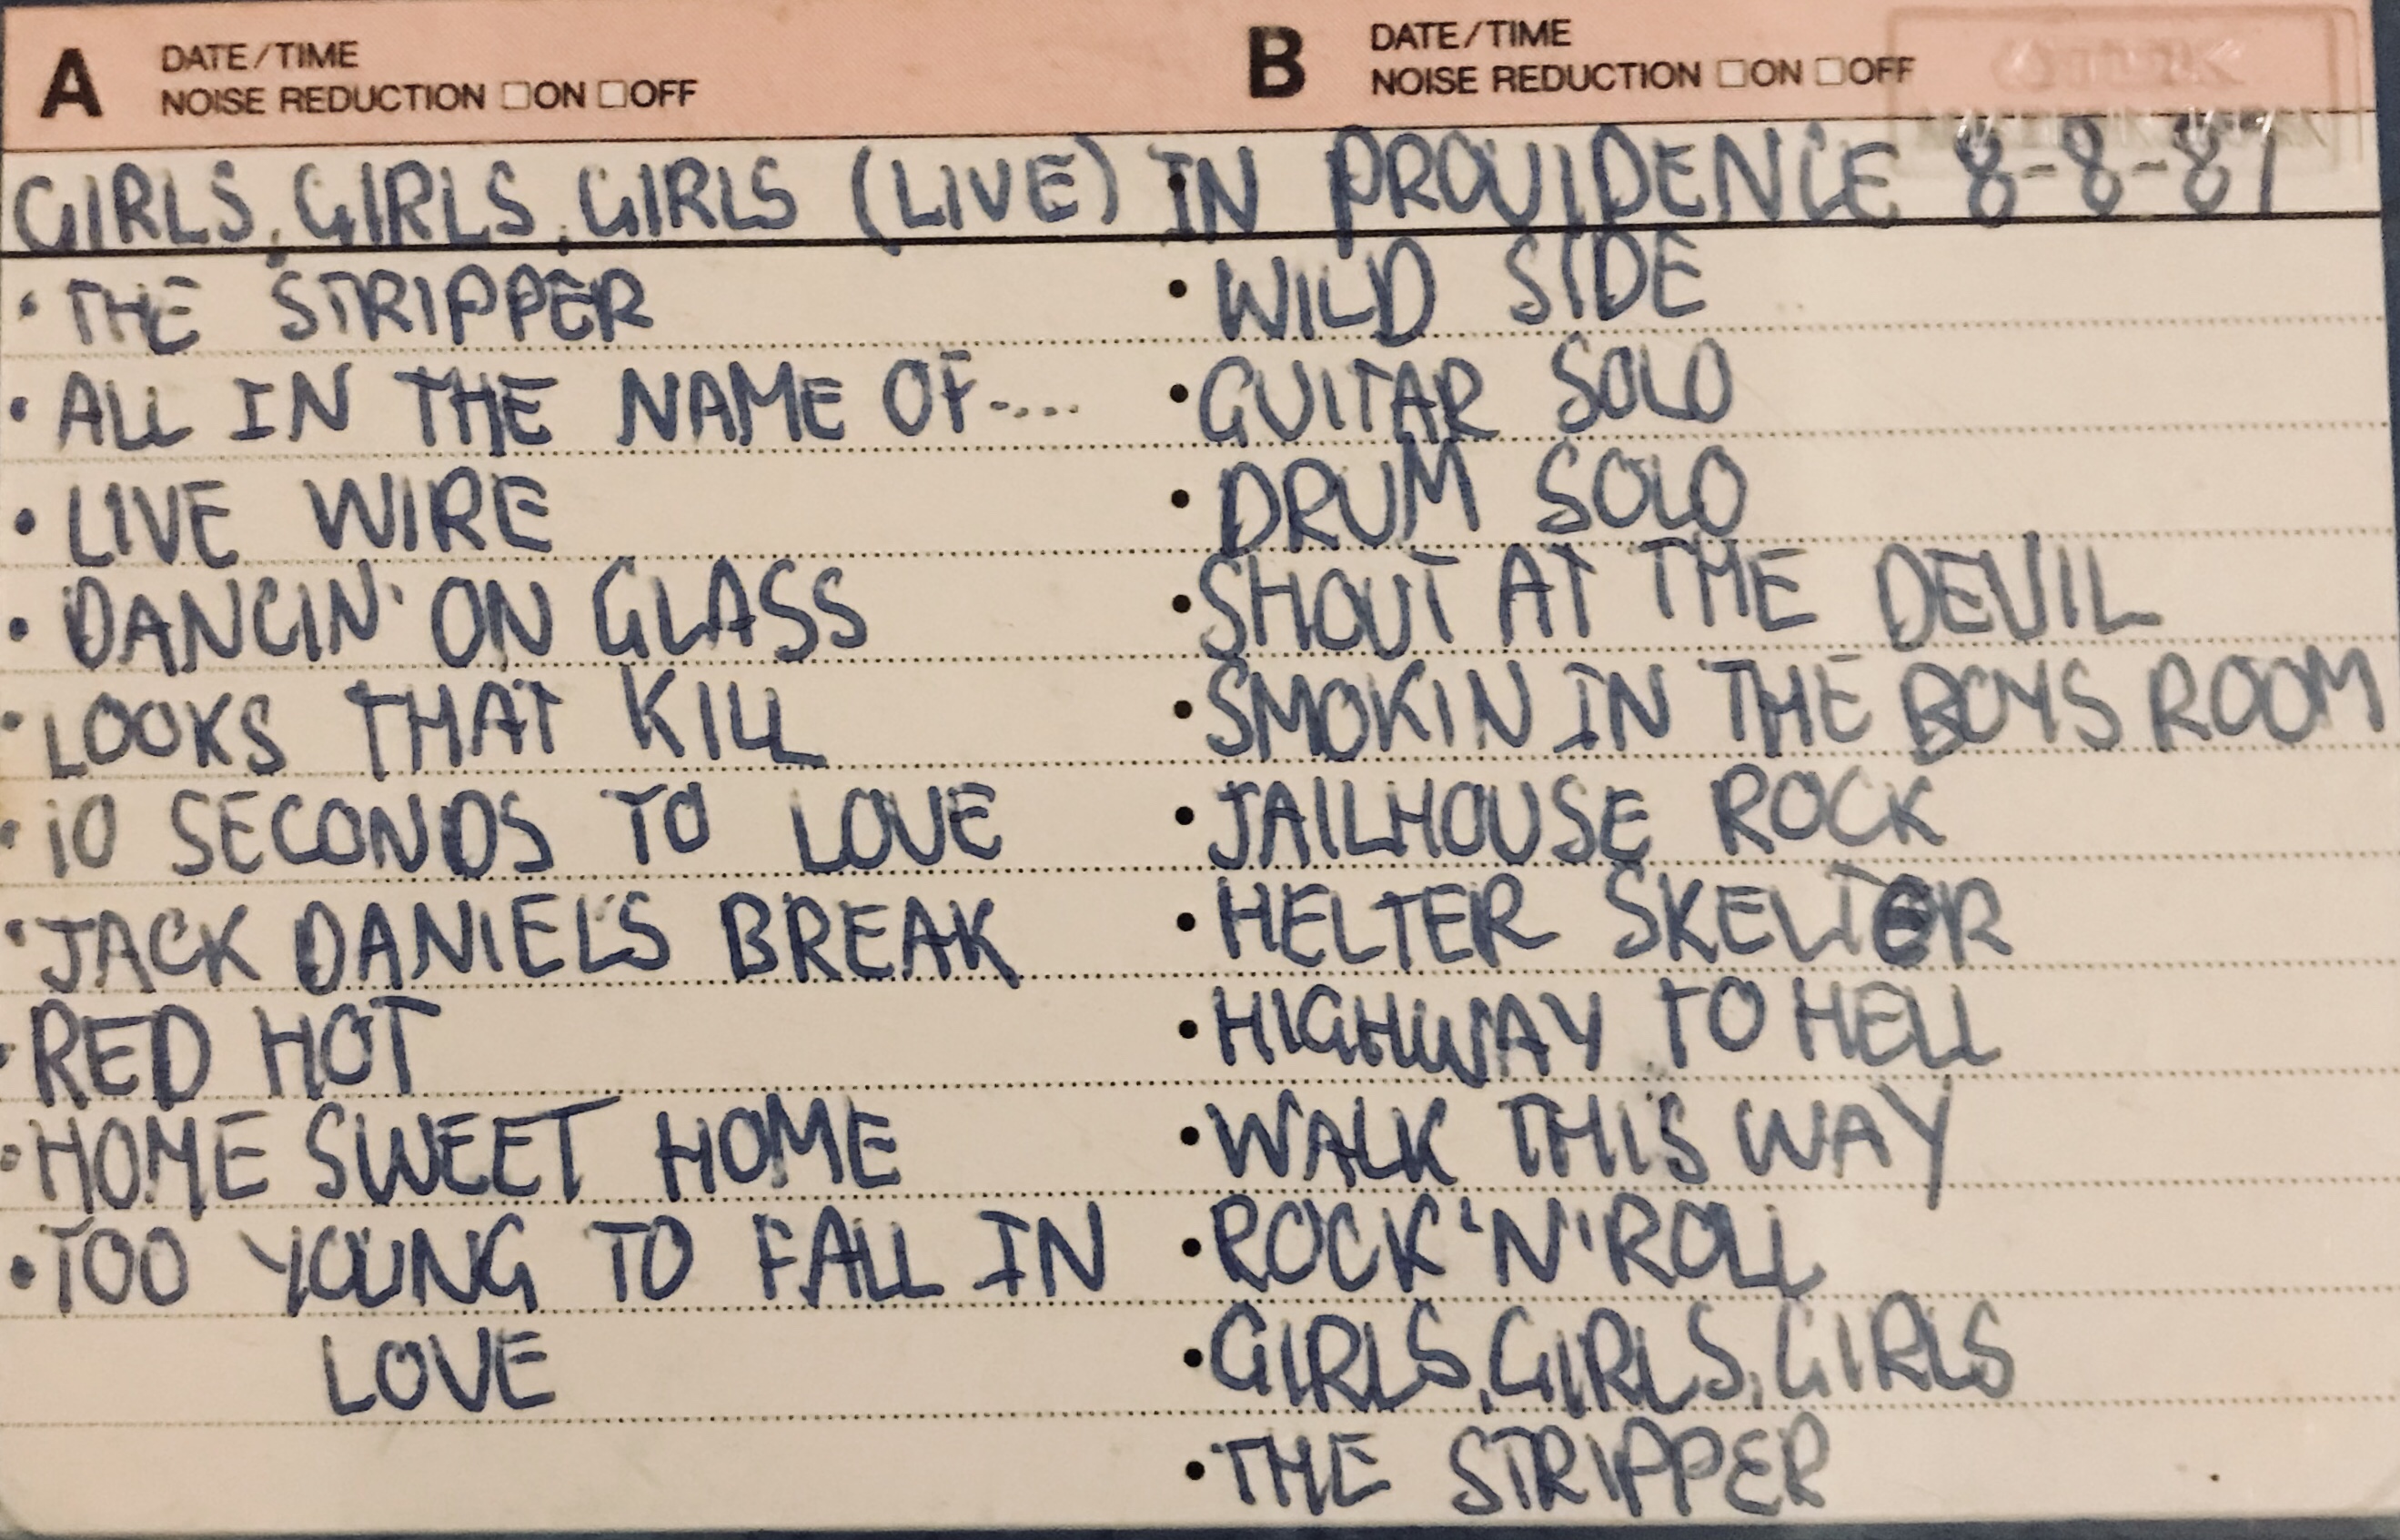 A DATE/TIME
NOISE REDUCTION □ON □OFF
B DATE/TIME
NOISE REDUCTION □ON □OFF
GIRLS, GIRLS, GIRLS (LIVE) IN PROVIDENCE 8-8-87
• THE STRIPPER
• ALL IN THE NAME OF....
• LIVE WIRE
• DANCIN' ON GLASS
• LOOKS THAT KILL
• 10 SECONDS TO LOVE
• JACK DANIEL'S BREAK
• RED HOT
• HOME SWEET HOME
• TOO YOUNG TO FALL IN
LOVE
• WILD SIDE
• GUITAR SOLO
• DRUM SOLO
• SHOUT AT THE DEVIL
• SMOKIN IN THE BOYS ROOM
• JAILHOUSE ROCK
• HELTER SKELTER
• HIGHWAY TO HELL
• WALK THIS WAY
• ROCK 'N' ROLL
• GIRLS, GIRLS, GIRLS
• THE STRIPPER